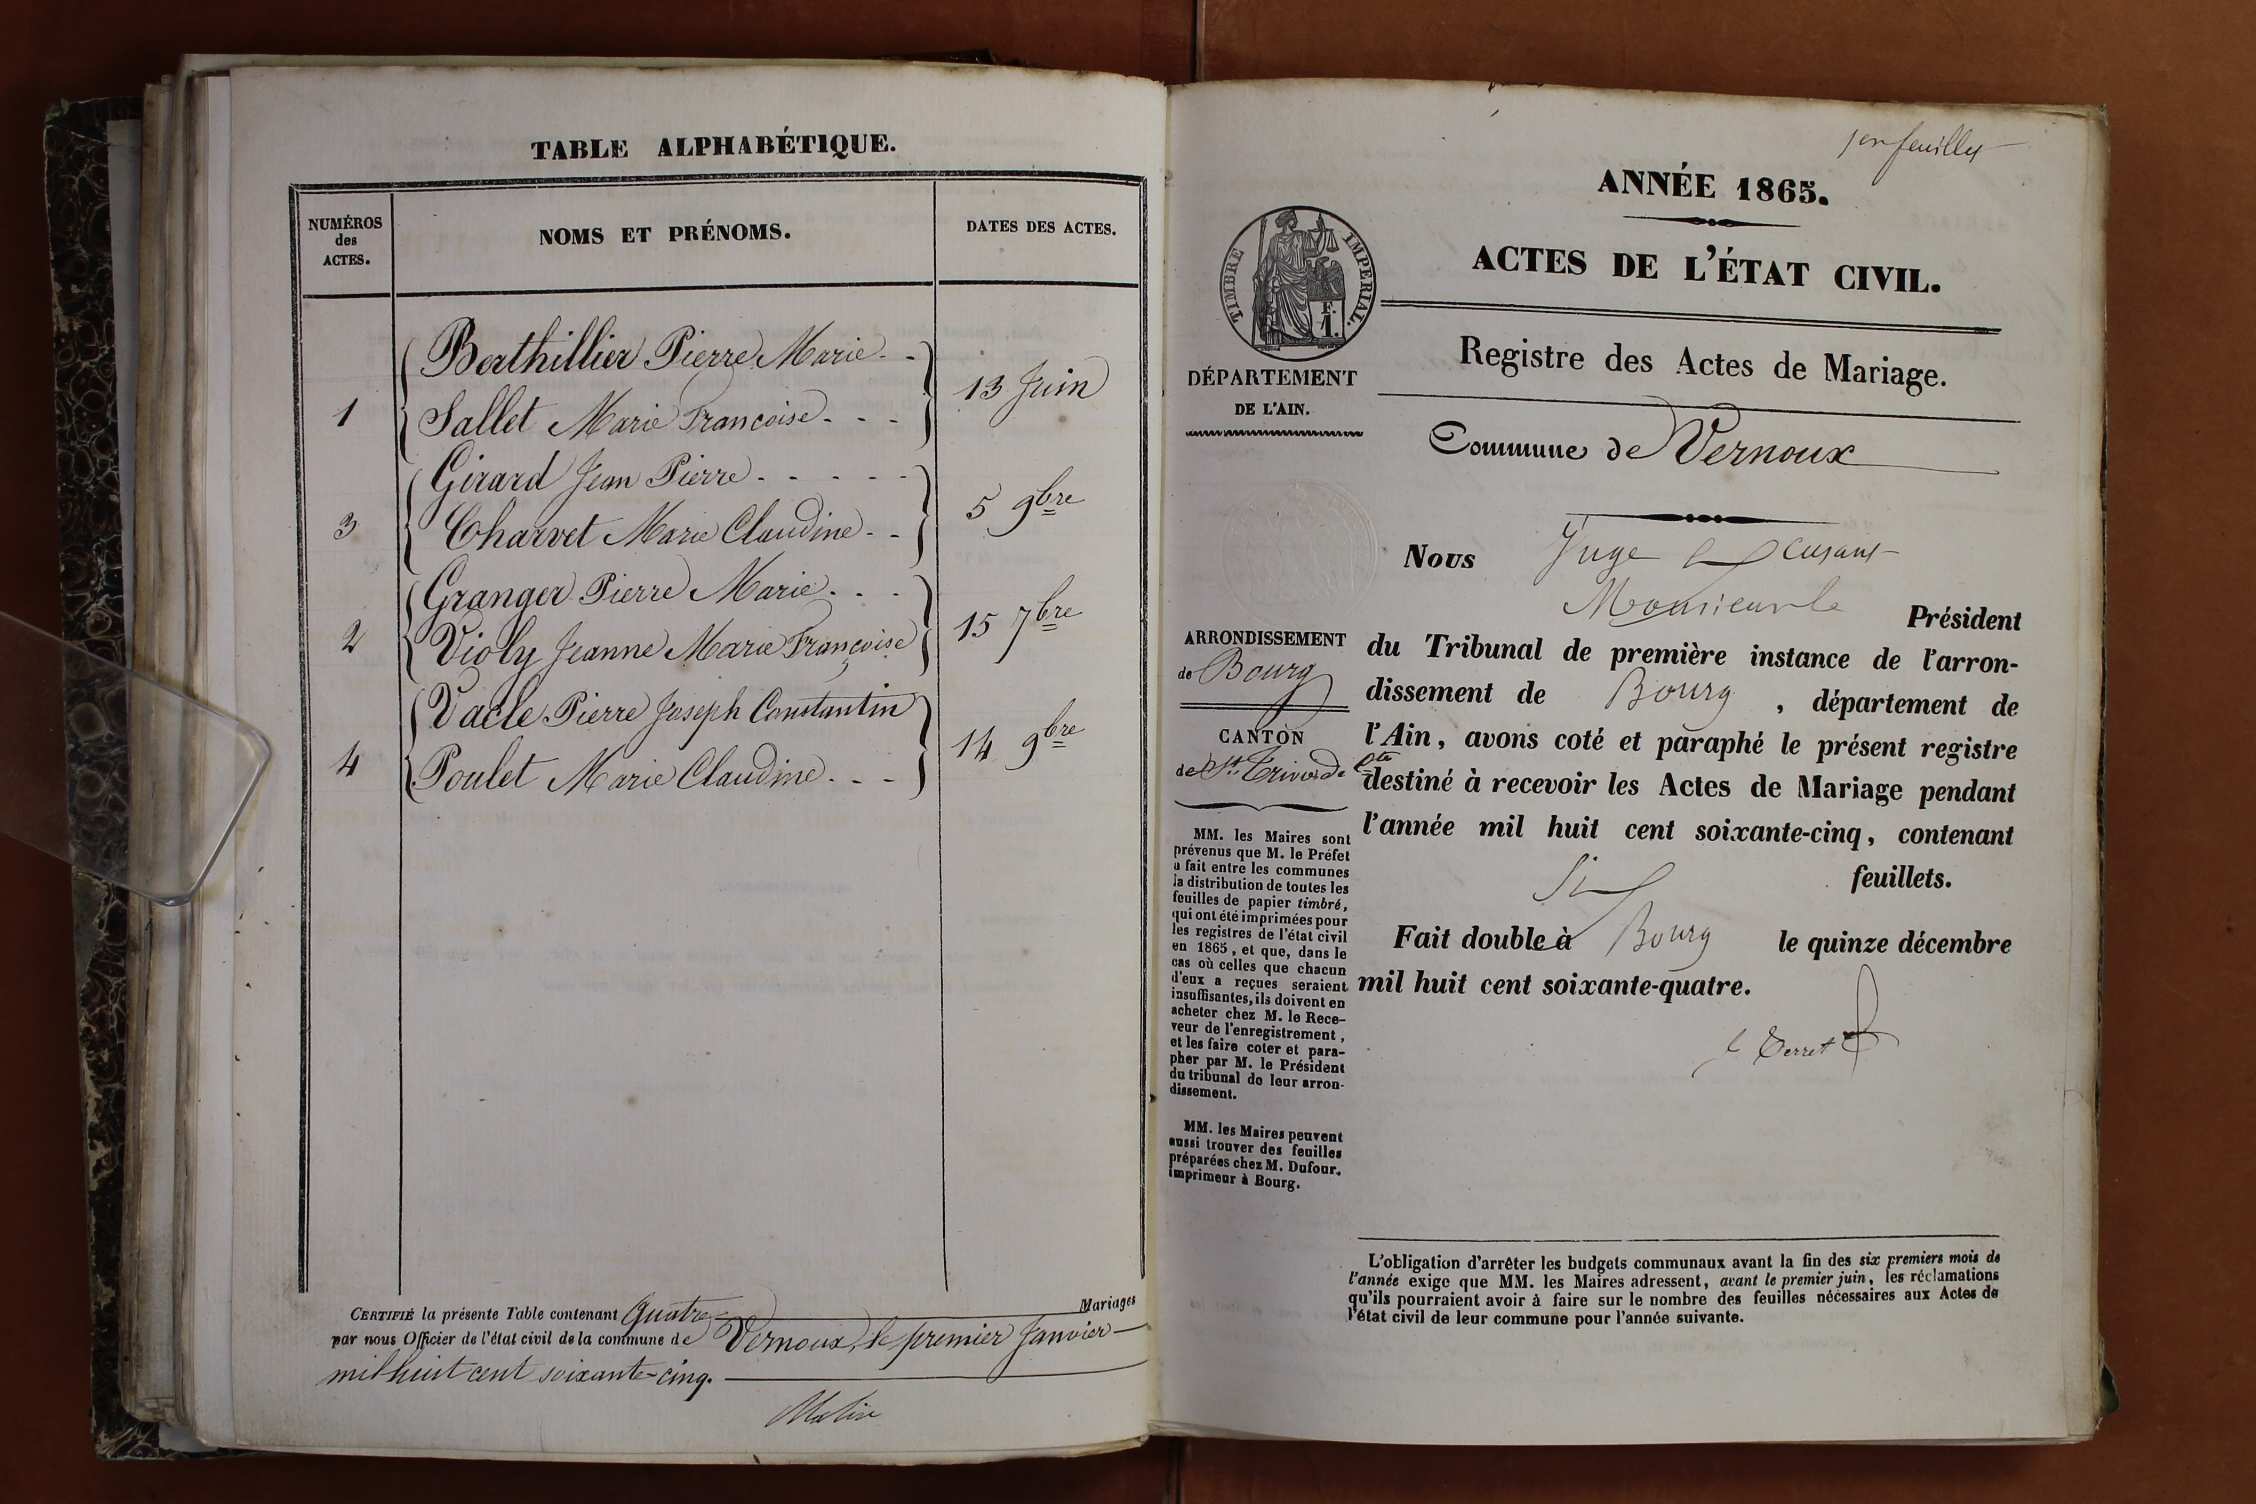 TABLE ALPHABÉTIQUE.
NUMÉROS
des
ACTES.
NOMS ET PRÉNOMS.
DATES DES ACTES.
Berthillier Pierre Marie - -
1
Sallet Marie Francoise - - -
13 Juin
Girard Jean Pierre - - - - -
3
Charvet Marie Claudine - -
5 9bre
Granger Pierre Marie - - -
2
Violy Jeanne Marie Françoise
15 7bre
Vacle Pierre Joseph Constantin
4
Poulet Marie Claudine - - -
14 9bre
CERTIFIÉ la présente Table contenant Quatre Mariages
par nous Officier de l'état civil de la commune de Vernoux, le premier Janvier
mil huit cent soixante-cinq.
ANNÉE 1865.
ACTES DE L'ÉTAT CIVIL.
TIMBRE IMPERIAL.
F.
1.
Registre des Actes de Mariage.
DÉPARTEMENT
DE L'AIN.
Commune de Vernoux
Nous Juge
Président
ARRONDISSEMENT
de Bourg
CANTON
de St. Trivier de Ctes
MM. les Maires sont
prévenus que M. le Préfet
a fait entre les communes
la distribution de toutes les
feuilles de papier timbré,
qui ont été imprimées pour
les registres de l'état civil
en 1865, et que, dans le
cas où celles que chacun
d'eux a reçues seraient
insuffisantes, ils doivent en
acheter chez M. le Rece-
veur de l'enregistrement,
et les faire coter et para-
pher par M. le Président
du tribunal de leur arron-
dissement.
MM. les Maires peuvent
aussi trouver des feuilles
préparées chez M. Dufour,
imprimeur à Bourg.
du Tribunal de première instance de l'arron-
dissement de Bourg, département de
l'Ain, avons coté et paraphé le présent registre
destiné à recevoir les Actes de Mariage pendant
l'année mil huit cent soixante-cinq, contenant
Six feuillets.
Fait double à Bourg le quinze décembre
mil huit cent soixante-quatre.
L'obligation d'arrêter les budgets communaux avant la fin des six premiers mois de
l'année exige que MM. les Maires adressent, avant le premier juin, les réclamations
qu'ils pourraient avoir à faire sur le nombre des feuilles nécessaires aux Actes de
l'état civil de leur commune pour l'année suivante.